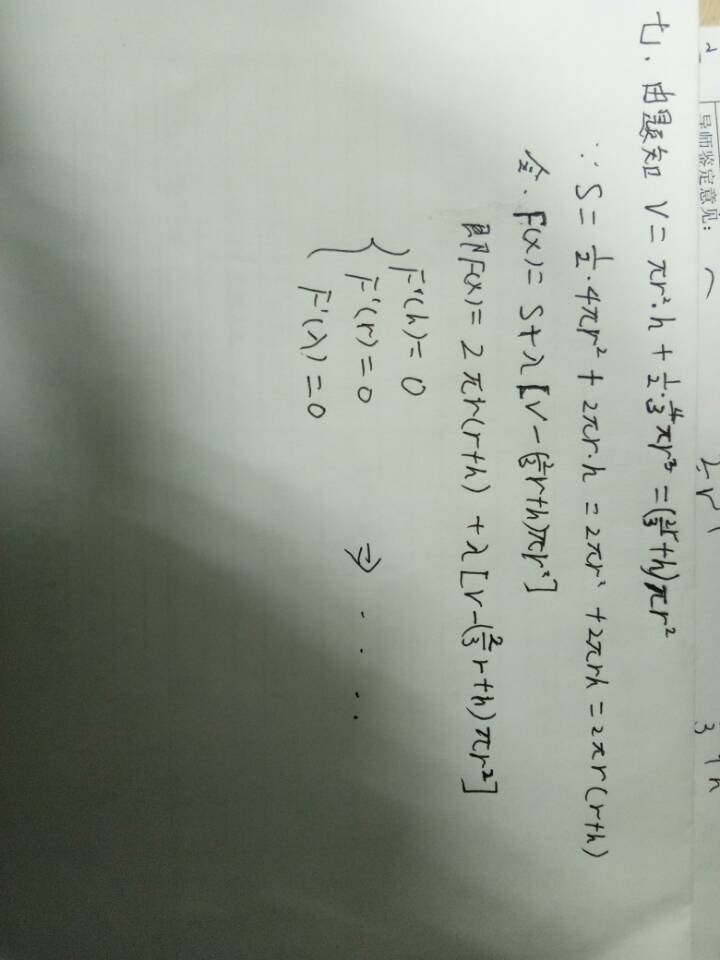 导师鉴定意见:
七. 由题知 V = πr²·h + 1/2·4/3πr³ = (2r/3+h)πr²
∵ S = 1/2·4πr² + 2πr·h = 2πr² + 2πrh = 2πr(r+h)
令. F(x) = S + λ[V-(2/3r+h)πr²]
即F(x) = 2πr(r+h) + λ[V-(2/3r+h)πr²]
{ F'(h) = 0
F'(r) = 0 ⇒ ...
F'(λ) = 0